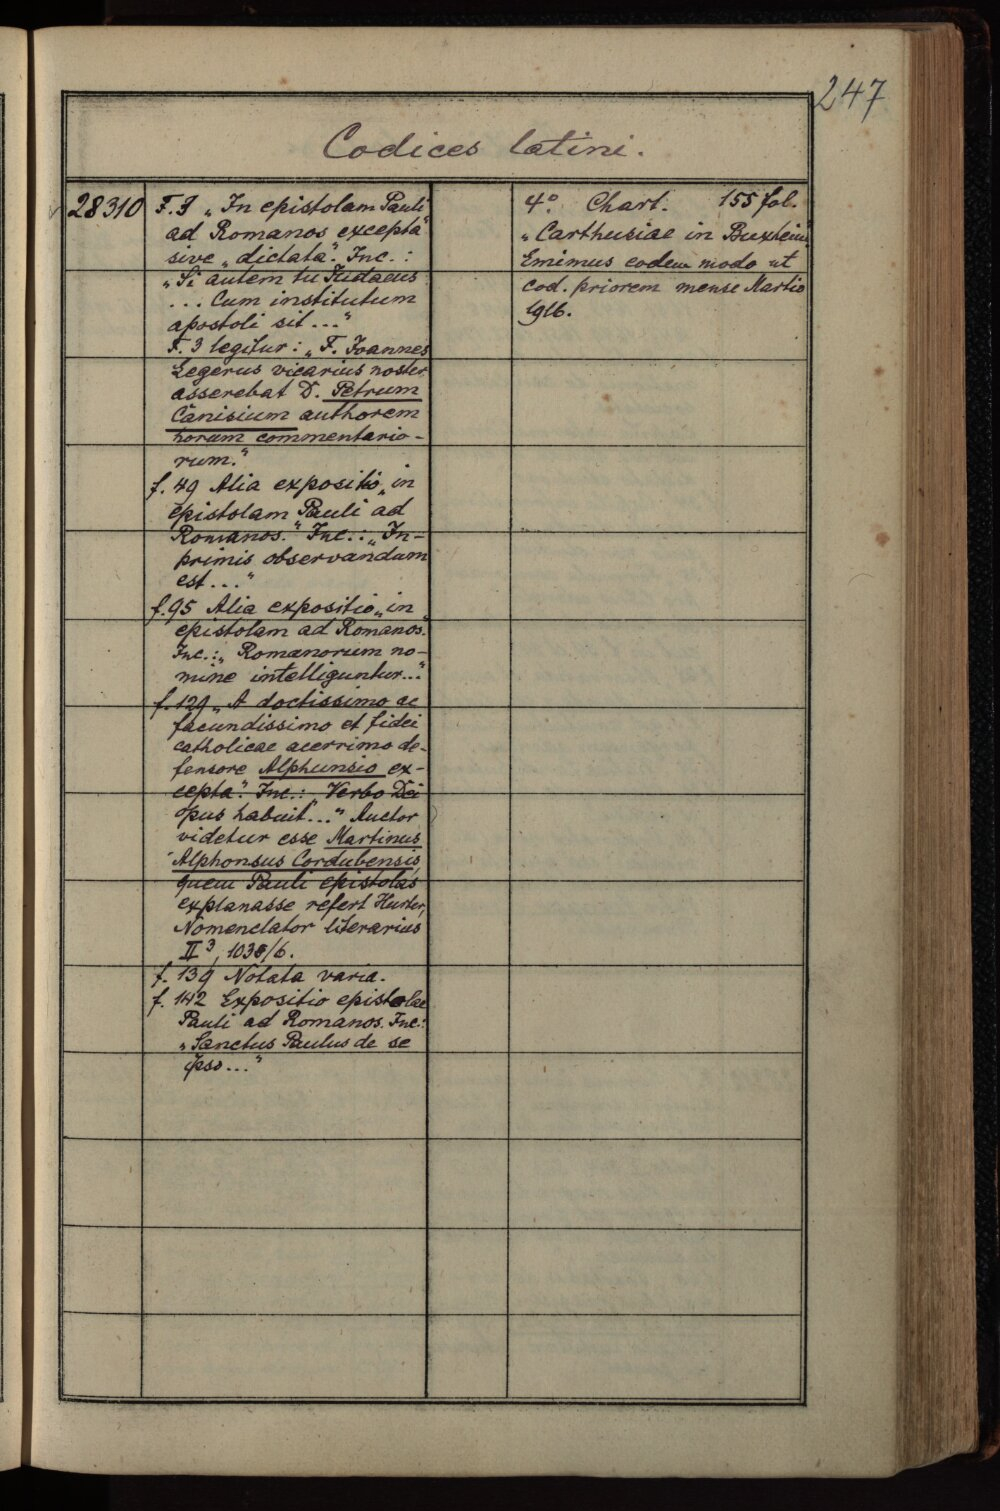 247
Codices latini.
28310
F. 3 „In epistolam Pauli
ad Romanos excepta"
sive „dictata". Inc.:
„Si autem tu Iudaeus
... Cum institutum
apostoli sit ..."
F. 3 legitur: „F. Joannes
Legerus vicarius noster
asserebat D. Petrum
Canisium authorem
horum commentario-
rum."
f. 49 Alia expositio „in
epistolam Pauli ad
Romanos." Inc.: „In-
primis observandum
est ..."
f. 95 Alia expositio „in
epistolam ad Romanos."
Inc.: „Romanorum no-
mine intelliguntur..."
f. 129 „A doctissimo ac
facundissimo et fidei
catholicae acerrimo de-
fensore Alphunsio ex-
cepta". Inc.: „Verbo Dei
opus habuit..." Auctor
videtur esse Martinus
Alphonsus Cordubensis,
quem Pauli epistolas
explanasse refert Hurter,
Nomenclator literarius
II³, 1035/6.
f. 139 Notata varia.
f. 142 Expositio epistolae
Pauli ad Romanos. Inc.:
„Sanctus Paulus de se
ipso..."
4°. Chart. 155 fol.
„Carthusiae in Buxheim"
Emimus eodem modo ut
cod. priorem mense Martio
1916.